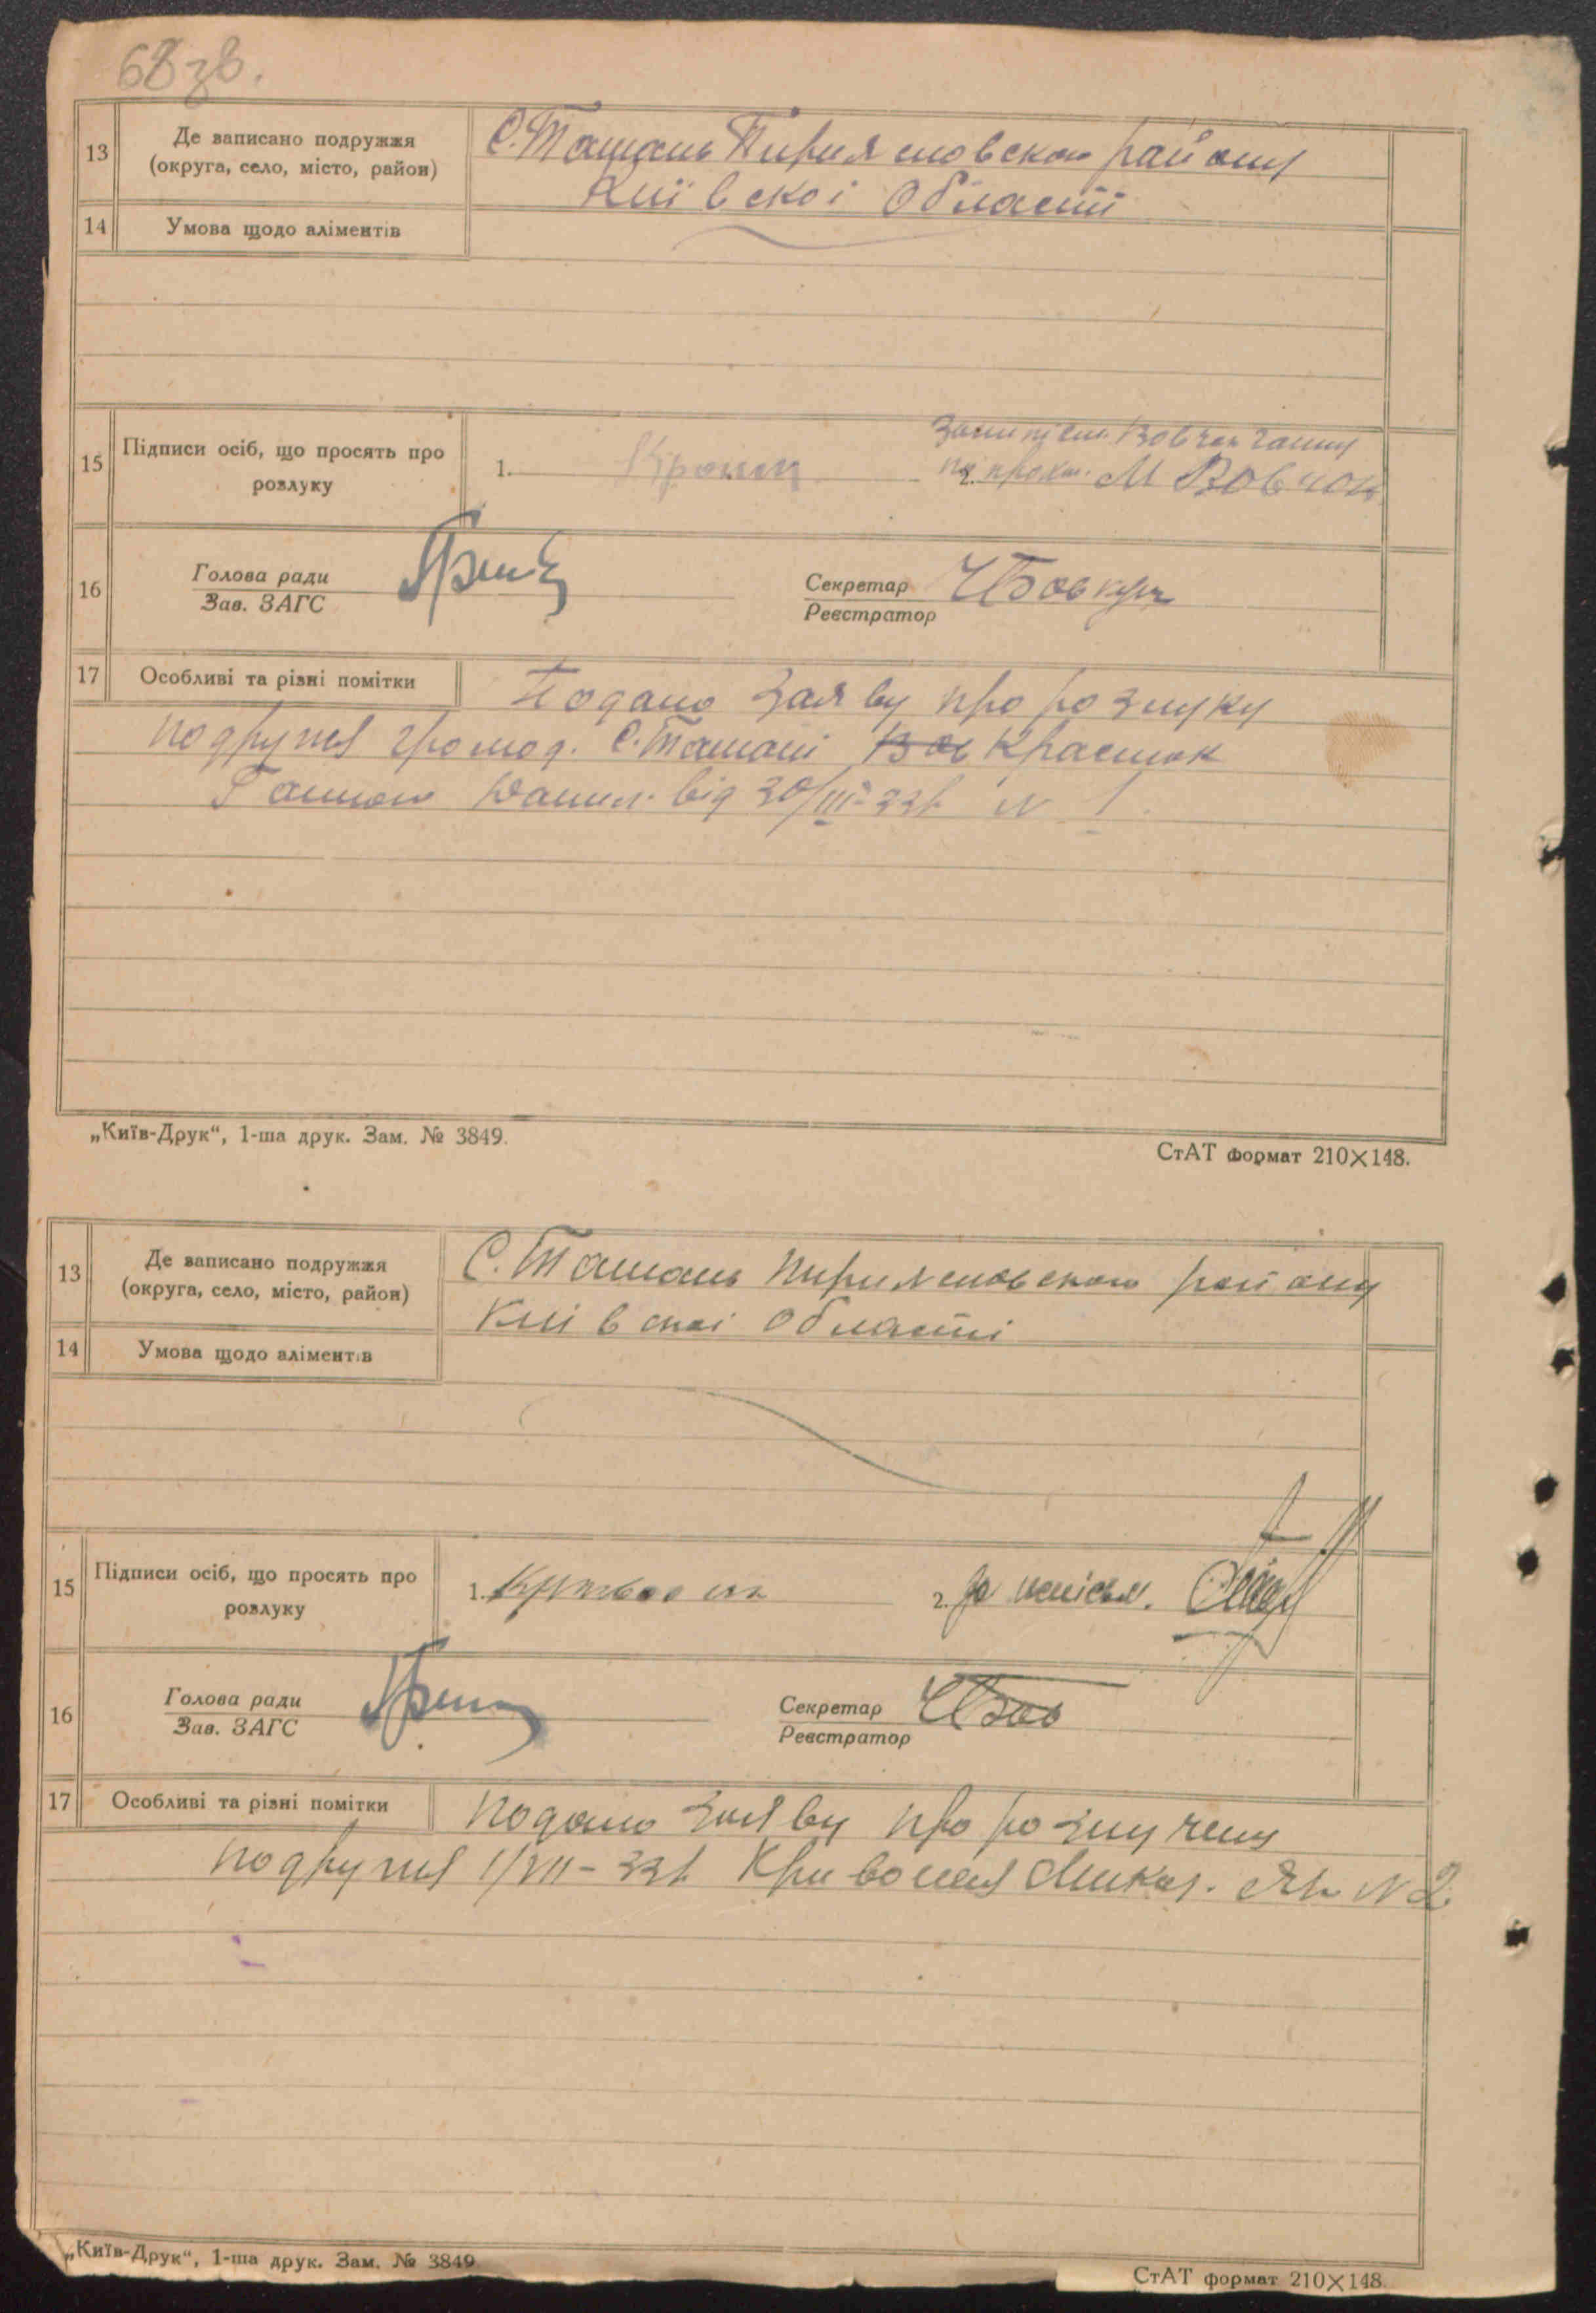 68 зв.
13
Де записано подружжя
(округа, село, місто, район)
С. Ташань Пириясловскою району
Київскої Області
14
Умова щодо аліментів
15
Підписи осіб, що просять про
розлуку
1.
2.
М Вовчок
16
Голова ради
Зав. ЗАГС
Секретар
Реєстратор
17
Особливі та різні помітки
Подано заяву про розлуку
подружя громад. С. Ташані Красцюк
Ганною Данил. від 30/III-33 р. N 1
„Київ-Друк“, 1-ша друк. Зам. № 3849.
СтАТ формат 210×148.
13
Де записано подружжя
(округа, село, місто, район)
С. Ташань Пириясловскою району
Київскоі Області
14
Умова щодо аліментів
15
Підписи осіб, що просять про
розлуку
1.
2. За неписьм.
16
Голова ради
Зав. ЗАГС
Секретар
Реєстратор
17
Особливі та різні помітки
Подано заяву про розлучену
подружя 1/VII-33 р. Кривошея Микол. N 2
„Київ-Друк“, 1-ша друк. Зам. № 3849
СтАТ формат 210×148.